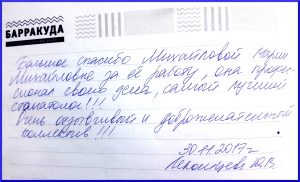 БАРРАКУДА
Большое спасибо Михайловой Марии
Михайловне за её работу, она профес-
сионал своего дела, самый лучший
стоматолог!!!
Очень отзывчивый и доброжелательный
коллектив!!!
30.11.2017г